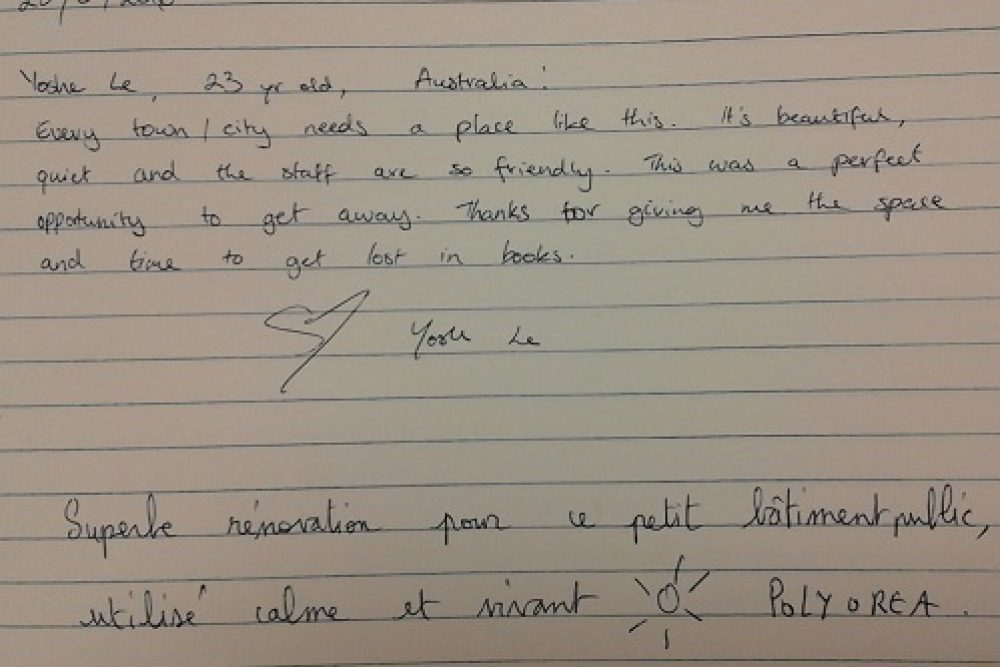 Yoshe Le, 23 yr old, Australia:
Every town / city needs a place like this. It's beautiful,
quiet and the staff are so friendly. This was a perfect
opportunity to get away. Thanks for giving me the space
and time to get lost in books.
Le
Superbe rénovation pour ce petit bâtiment public,
utilisé calme et vivant POLYOREA.